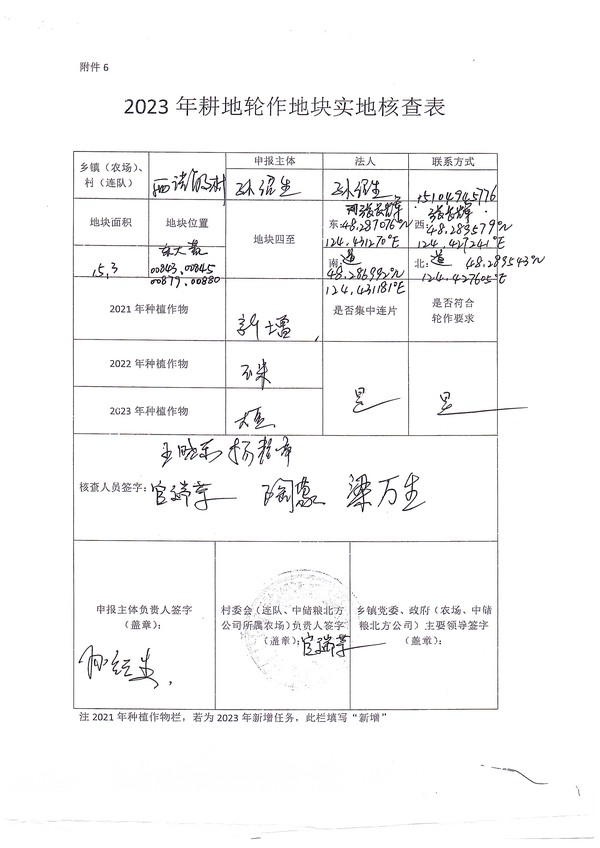 附件 6
2023 年耕地轮作地块实地核查表
乡镇（农场）、
村（连队）
申报主体
法人
联系方式
孙绍生
孙绍生
15104945776
地块面积
地块位置
地块四至
15.3
00843.00845
00879.00880
东:
48.287076°N
124.431270°E
西:
48.283579°N
124.427241°E
南:道
48.286992°N
124.431181°E
北:道 48.289543°N
124.427605°E
2021 年种植作物
新增
是否集中连片
是否符合
轮作要求
2022 年种植作物
玉米
是
是
2023 年种植作物
大豆
核查人员签字:
官瑞芹 陶蒙 梁万生
申报主体负责人签字
（盖章）：
孙绍生
村委会（连队、中储粮北方
公司所属农场）负责人签字
（盖章）：官瑞芹
乡镇党委、政府（农场、中储
粮北方公司）主要领导签字
（盖章）：
注 2021 年种植作物栏，若为 2023 年新增任务，此栏填写“新增”